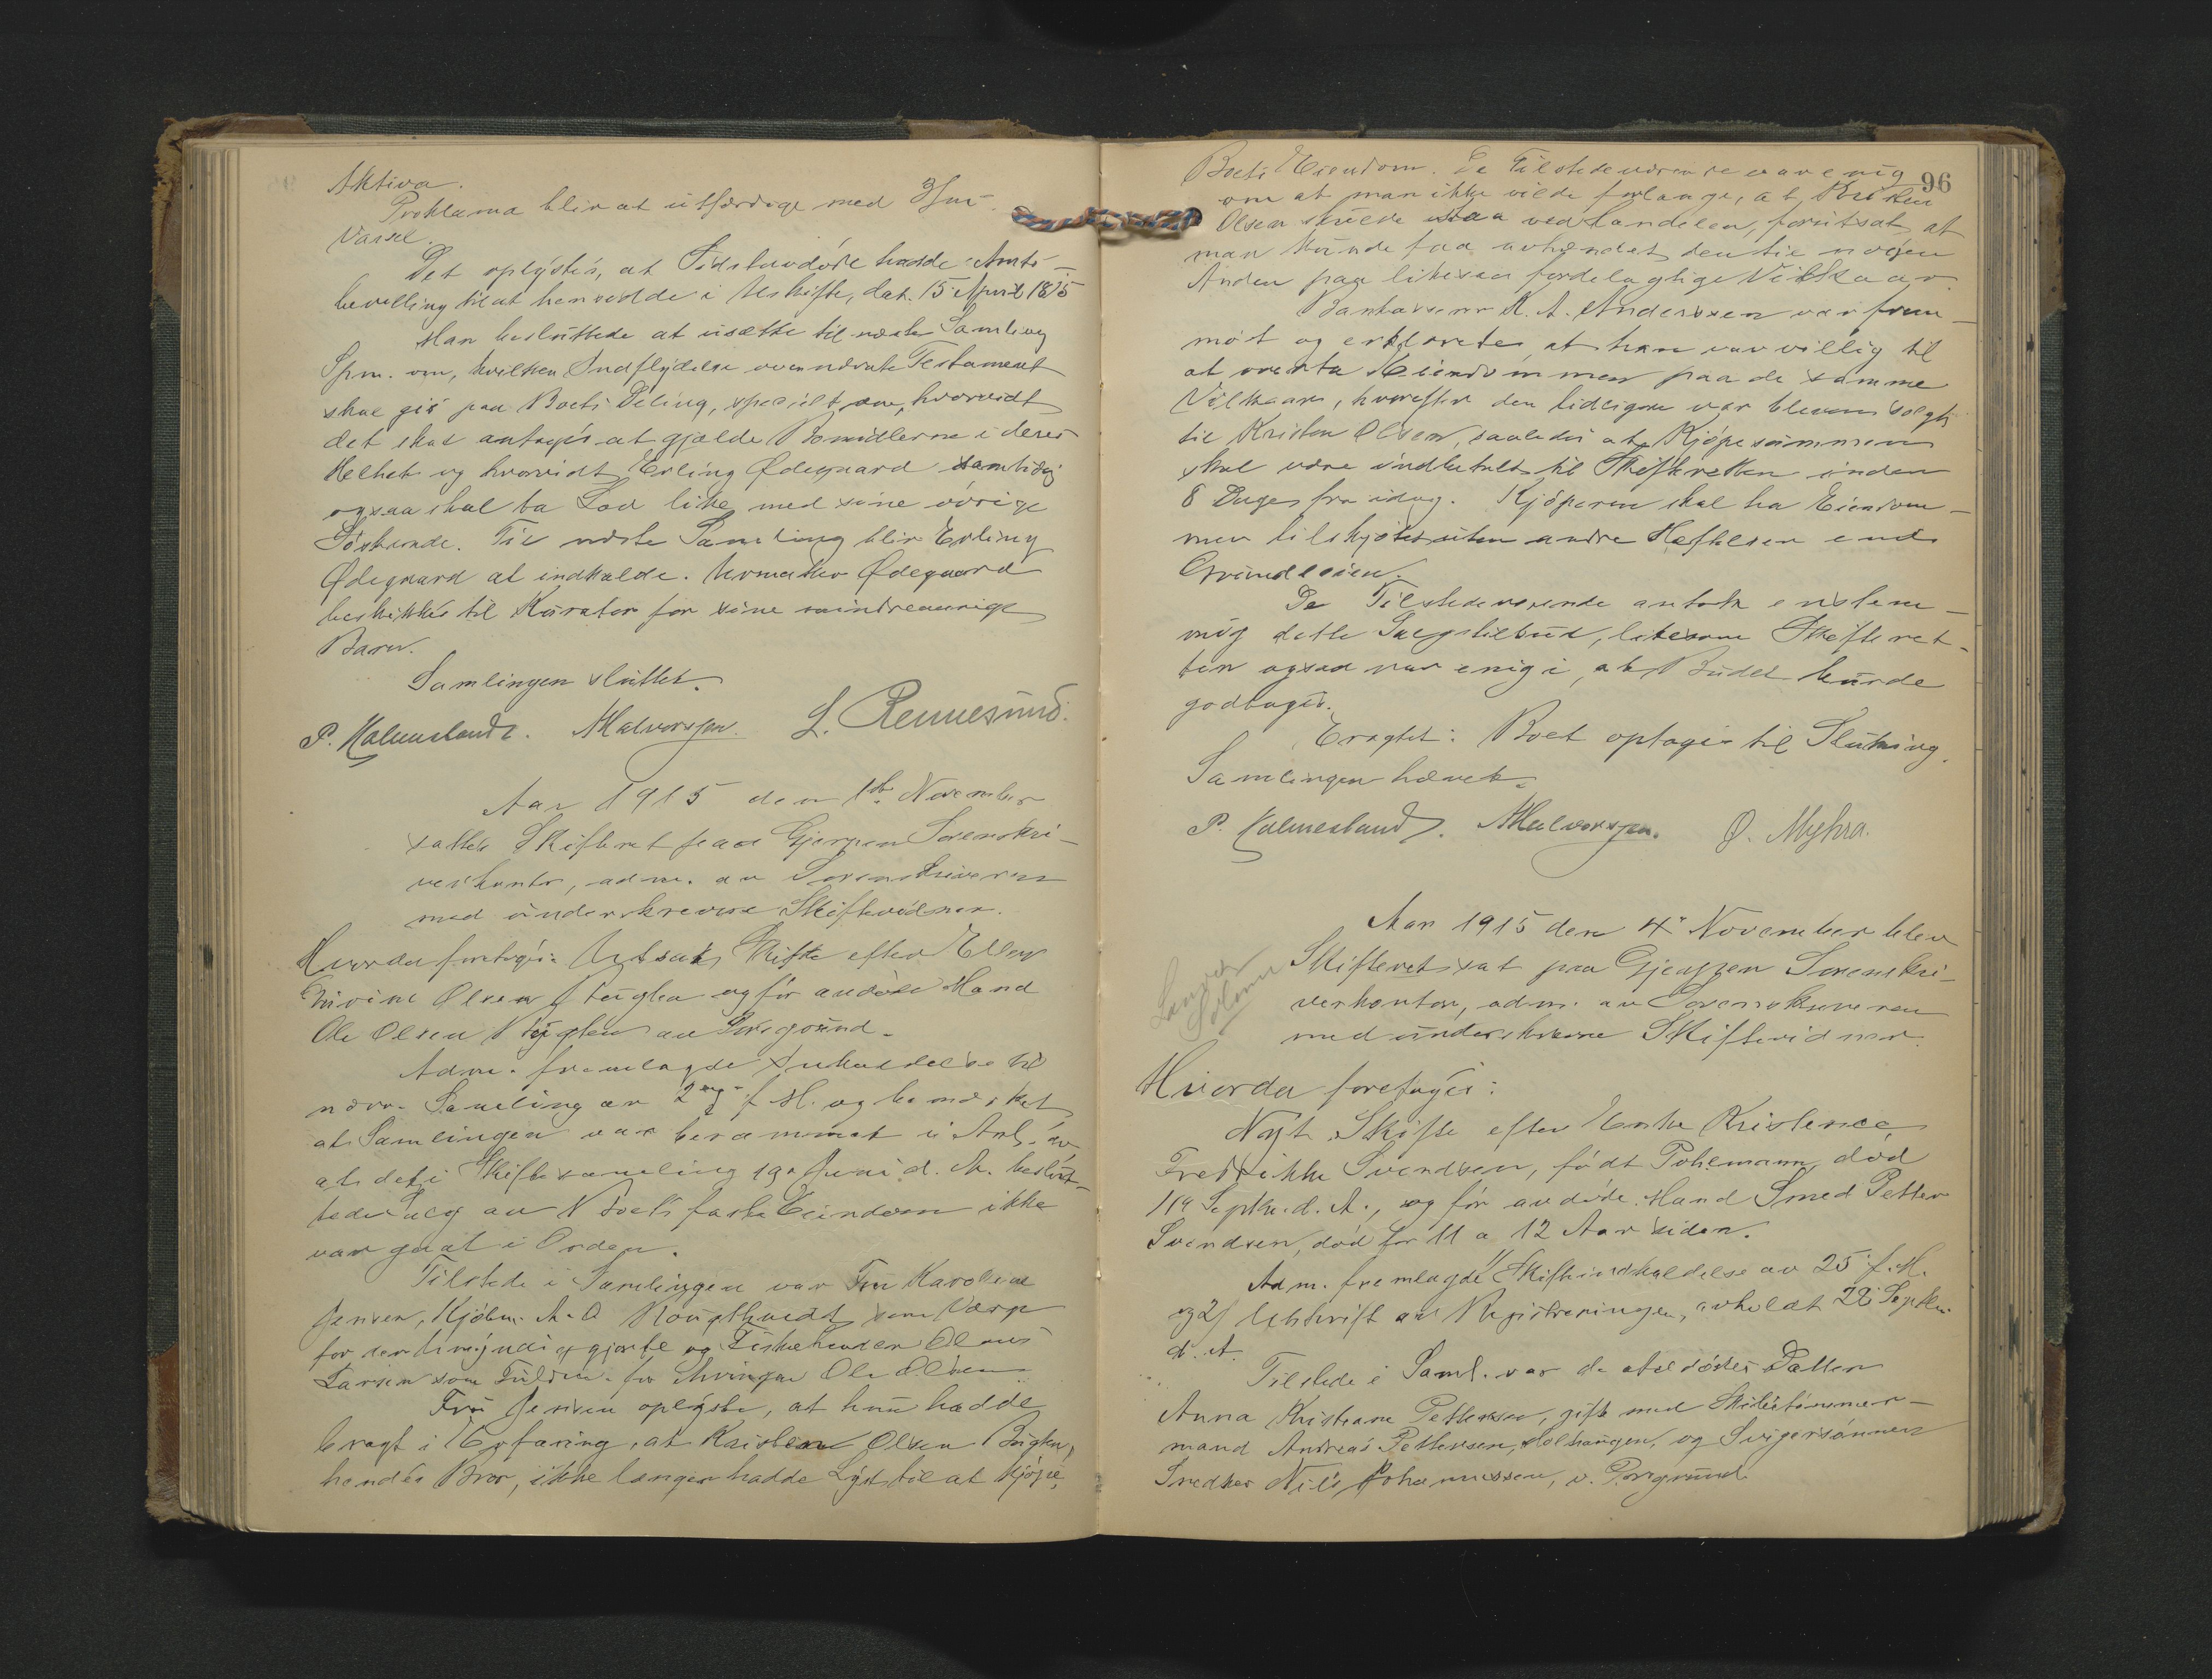 Aktiva.
Proklama blir at utfærdige med 3 Uni
Varsel.
Det oplystes, at Sidstavdöde hadde Amts-
bevilling til at hensidde i Uskifte, dat. 15 April 1875
Man besluttede at utsætte til næste Samling
Spm. om, hvilken Indflydelse ovennævnte Testament
skal gis paa Boets Deling, specielt om, hvorvidt
det skal antages at gjælde Bomidlerne i deres
Helhet og hvorvidt Erling Ødegaard samtidig
ogsaa skal ta Lod like med sine övrige
Söskende. Til næste Samling blir Erling
Ødegaard at indkalde. Urmaker Ødegaard
beskikkes til Kurator for sine mindreaarige
Barn.
Samlingen sluttet.
P. Kalmeslandz. AHalvorsjen. L. Rennesund.
Aar 1915 den 1ste November
sattes Skifteret paa Gjerpen Sorenskri-
verkontor, adm. av Sorenskriveren
med underskrevne Skiftevidner.
Hvorda foretoges: Utsat Skifte efter Ellen
Olsen og för avdöde Mand
Ole Olsen av Porsgrund.
Adm. fremlagde Indkaldelse til
nærv. Samling av f. M. og bemærket
at Samlingen var berammet i Anl. av
at det i Skiftesamling 19 Juni d. A. beslut-
tede Salg av Boets faste Eiendom ikke
var gaat i Orden.
Tilstede i Samlingen var Fru Karoline
Jensen, Kjöbm. A. O. som Værge
for den umyndiggjorte og Fiskehandler Olaus
Larsen som Fuldm. for Ole Olsen.
Fru Jensen oplyste, at hun hadde
bragt i Erfaring, at Kristen Olsen
hendes Bror, ikke længer hadde Lyst til at kjöpe,
96
Boets Eiendom. De Tilstedeværende var enig
om at man ikke vilde forlange, at Kristen
Olsen skulde staa ved Handelen, forutsat, at
man kunde faa avhændet den til nogen
Anden paa likesaa fordelagtige Vilkaar.
Bankkasserer A. A. Anderssen var frem-
möt og erklærte, at han var villig til
at overta Eiendommen paa de samme
Vilkaar, hvorefter den tidligere var bleven solgt
til Kristen Olsen, saaledes at Kjöpesummen
skal være indbetalt til Skifteretten inden
8 Dage fra idag. Kjöperen skal ha Eiendom-
men tilskjötet uten andre Heftelser end
Grundleien.
De Tilstedeværende antok enstem-
mig dette Salgstilbud, likesom Skifteret-
ten ogsaa var enig i, at Budet burde
godtages.
Eragtet: Boet optages til Slutning.
Samlingen hævet.
P. Kalmeslandz. AHalvorsjen. Ø. Myhra.
Aar 1915 den 4de November blev
Skifteret sat paa Gjerpen Sorenskri-
verkontor, adm. av Sorenskriveren
med underskrevne Skiftevidner.
Hvorda foretoges:
Nyt Skifte efter Enke Kristence
Fredrikke Svendsen, födt Pohlmann, död
11te Septbr. d. A., og för avdöde Mand Smed Petter
Svendsen, död for 11 a 12 Aar siden.
Adm. fremlagde 1) Skifteindkaldelse av 25 f. M.
og 2) Utskrift av Registreringen, avholdt 28 Septbr.
d. A.
Tilstede i Saml. var de avdödes Datter
Anna Kristiane Pettersen, gift med Skibstömmer-
mand Andreas Pettersen, og Svigersönnen
Snedker Nils Johannessen, v. Porsgrund